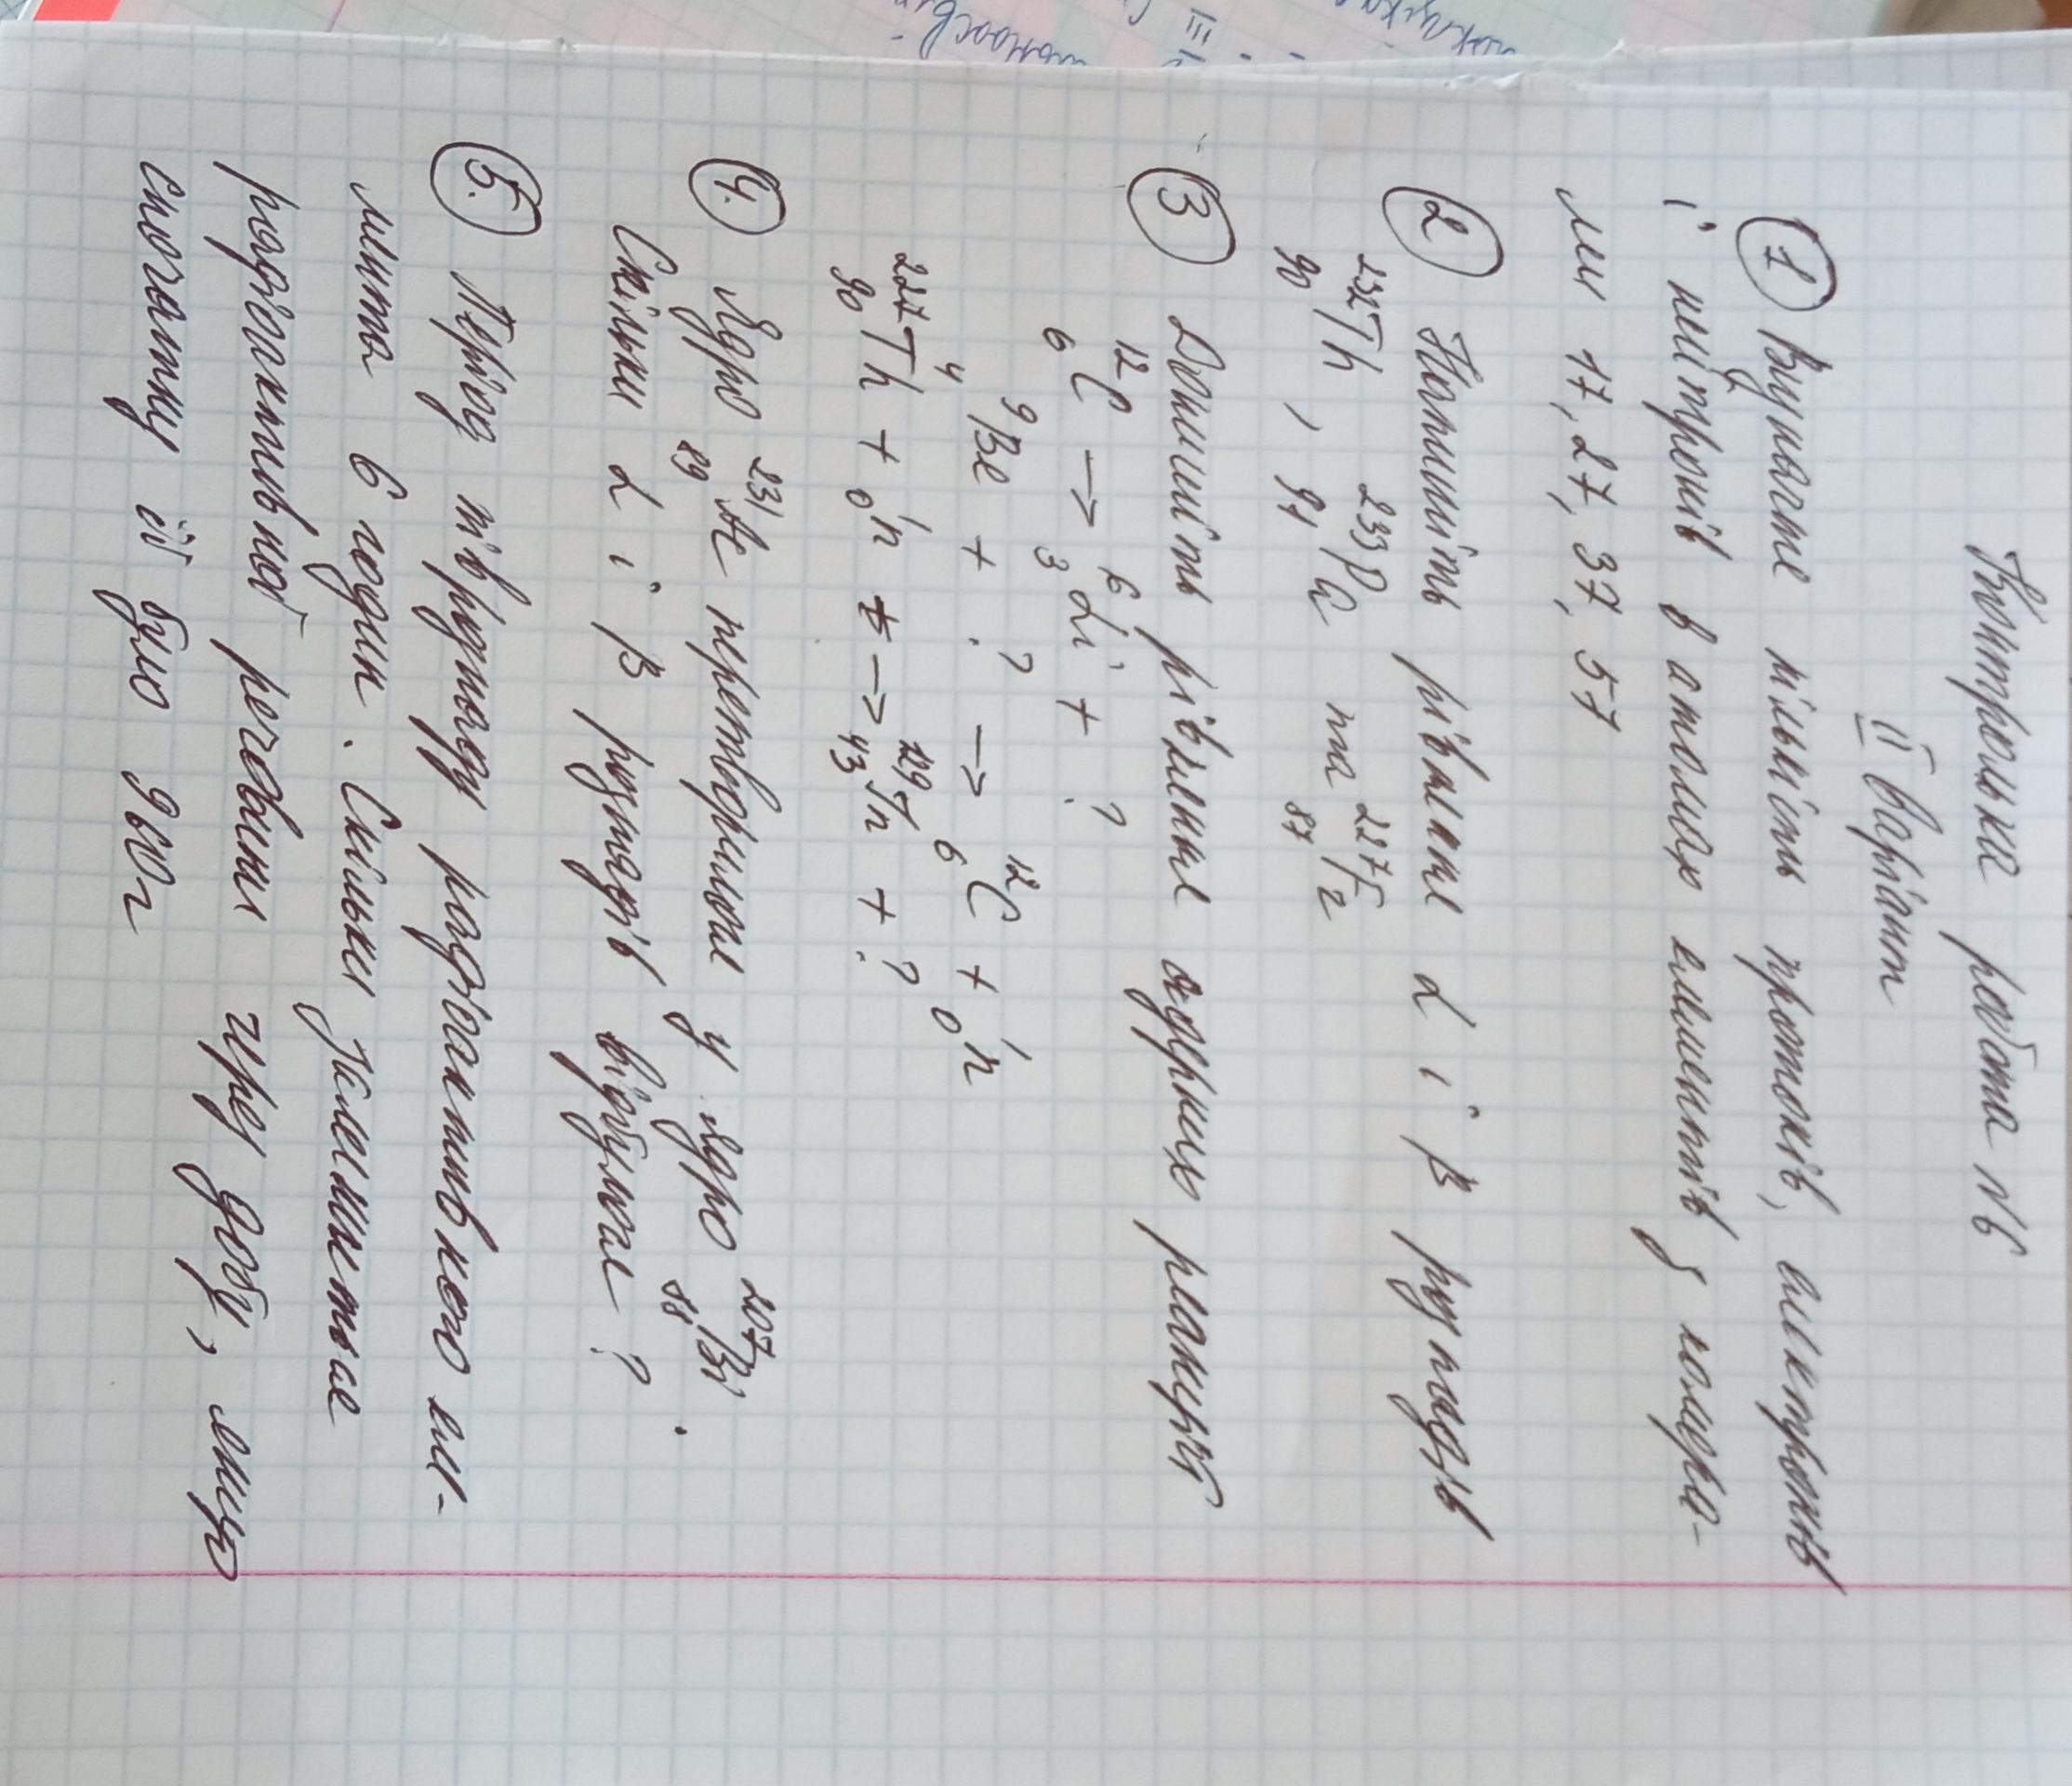 Контрольна робота №6
II варіант
① Визначте кількість протонів, електронів
і нейтронів в атомах елементів з номера-
ми 17, 27, 37, 57
② Напишіть рівняння α і β розпадів
²³²₉₀Th, ²³³₉₁Pa та ²²⁷₈₇Fr
③ Допишіть рівняння ядерних реакцій
¹²₆C → ⁶₃Li + ?
⁹₄Be + ? → ¹²₆C + ¹₀n
²²⁷₉₀Th + ¹₀n → ¹²⁹₄₃Tn + ?
④. Ядро ²³¹₈₉Ac перетворилося у ядро ²⁰⁷₈₈Bi.
Скільки α і β розпадів відбулося?
⑤. Період піврозпаду радіоактивного еле-
мента 6 годин. Скільки залишиться
радіоактивної речовини через добу, якщо
спочатку її було 960г